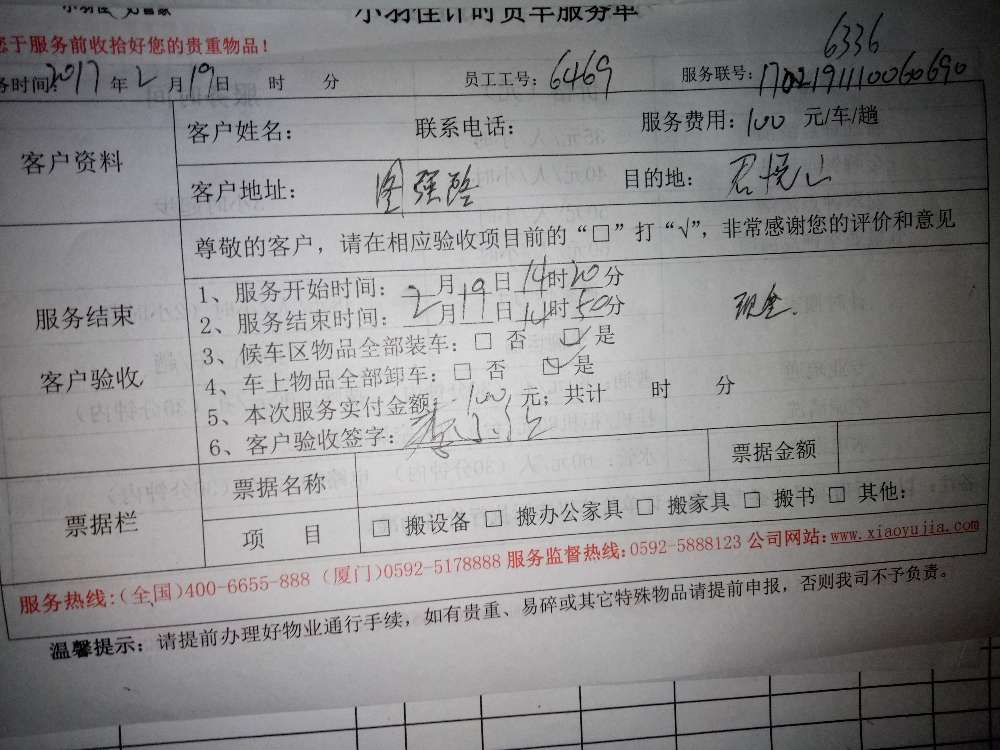 小羽佳计时货车服务单
您于服务前收拾好您的贵重物品！
6336
务时间：2017年2月19日 时 分 员工工号：6469 服务联号：1702191110060690
客户资料
客户姓名： 联系电话： 服务费用：100 元/车/趟
客户地址：图强路 目的地：君悦山
尊敬的客户，请在相应验收项目前的“□”打“√”，非常感谢您的评价和意见
服务结束
客户验收
1、服务开始时间：2月19日14时20分
2、服务结束时间：2月19日14时50分
现金.
3、候车区物品全部装车：□ 否 ☑ 是
4、车上物品全部卸车：□ 否 ☑ 是
5、本次服务实付金额：100元；共计 时 分
6、客户验收签字：
票据栏
票据名称 票据金额
项 目 □ 搬设备 □ 搬办公家具 □ 搬家具 □ 搬书 □ 其他：
服务热线：（全国）400-6655-888（厦门）0592-5178888 服务监督热线：0592-5888123 公司网站：www.xiaoyujia.com
温馨提示：请提前办理好物业通行手续，如有贵重、易碎或其它特殊物品请提前申报，否则我司不予负责。